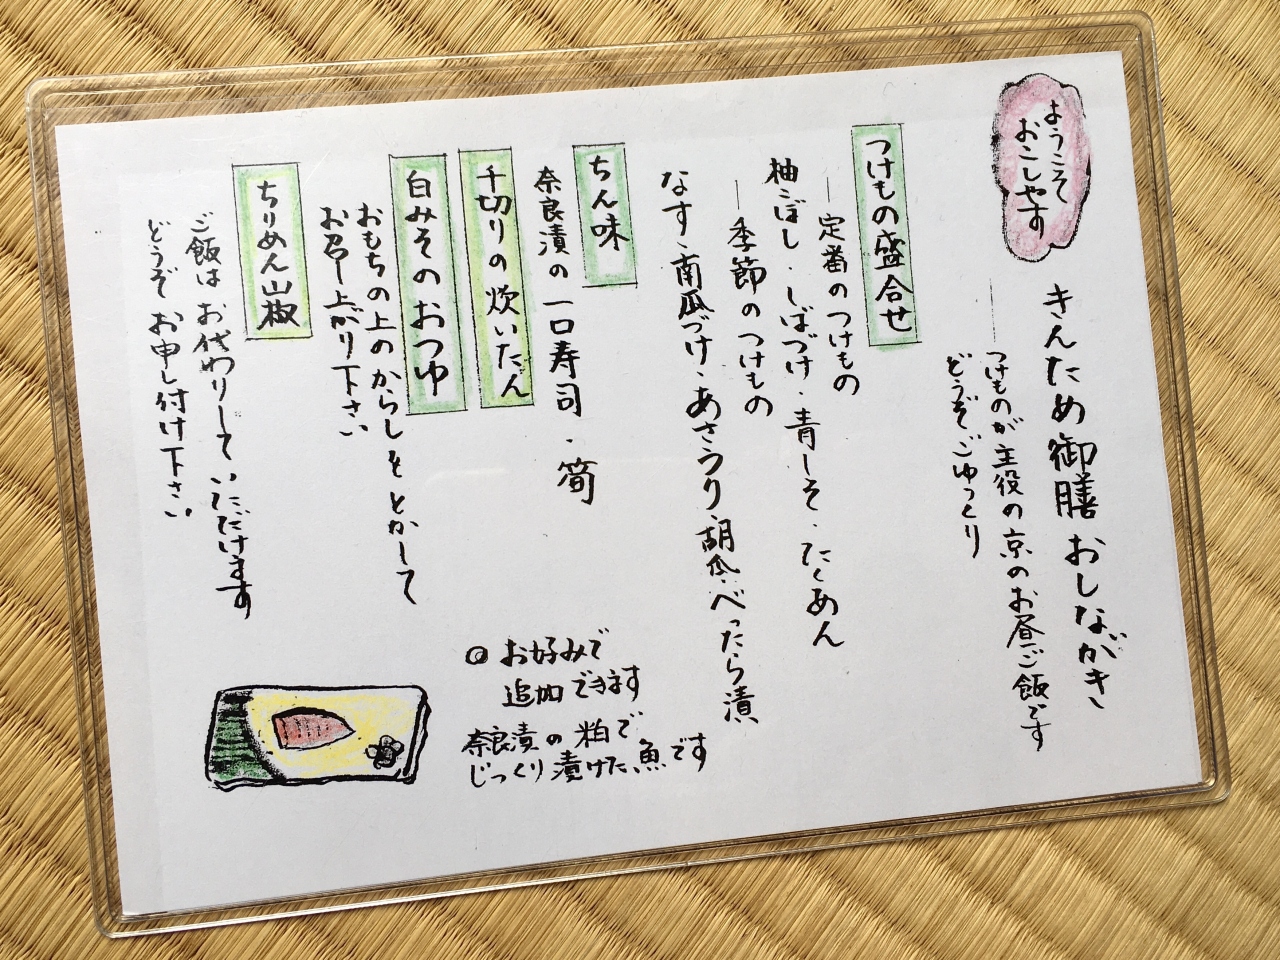 ようこそ
おこしやす
きんため御膳おしながき
つけものが主役の京のお昼ご飯です
どうぞごゆっくり
つけもの盛合せ
―定番のつけもの
柚こぼし・しばづけ・青しそ・たくあん
―季節のつけもの
なす・南瓜づけ・あさうり・胡瓜・べったら漬
ちん味
奈良漬の一口寿司・筍
千切りの炊いたん
白みそのおつゆ
おもちの上のからしをとかして
お召し上がり下さい
ちりめん山椒
ご飯はお代わりしていただけます
どうぞお申し付け下さい
◎お好みで
追加できます
奈良漬の粕で
じっくり漬けた魚です